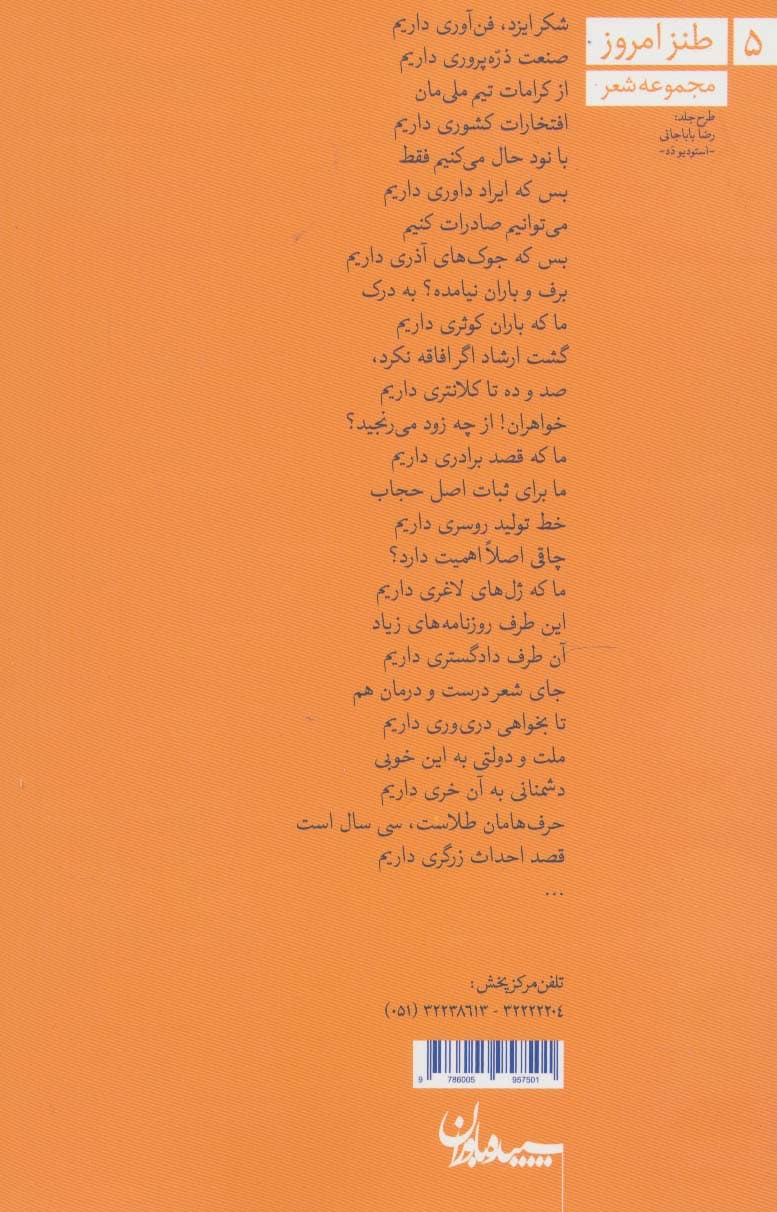 ۵
طنز امروز
مجموعه شعر
طرح جلد:
رضا باباجانی
-استودیو دَد-
شکر ایزد، فن‌آوری داریم
صنعت ذرّه‌پروری داریم
از کرامات تیم ملی‌مان
افتخارات کشوری داریم
با نود حال می‌کنیم فقط
بس که ایراد داوری داریم
می‌توانیم صادرات کنیم
بس که جوک‌های آذری داریم
برف و باران نیامده؟ به درک
ما که باران کوثری داریم
گشت ارشاد اگر افاقه نکرد،
صد و ده تا کلانتری داریم
خواهران! از چه زود می‌رنجید؟
ما که قصد برادری داریم
ما برای ثبات اصل حجاب
خط تولید روسری داریم
چاقی اصلاً اهمیت دارد؟
ما که ژل‌های لاغری داریم
این طرف روزنامه‌های زیاد
آن طرف دادگستری داریم
جای شعر درست و درمان هم
تا بخواهی دری‌وری داریم
ملت و دولتی به این خوبی
دشمنانی به آن خری داریم
حرف‌هامان طلاست، سی سال است
قصد احداث زرگری داریم
...
تلفن مرکز پخش:
۳۲۲۲۲۲۰۴ - ۳۲۲۳۸۶۱۳ (۰۵۱)
9 786005 957501
سپیده‌باوران